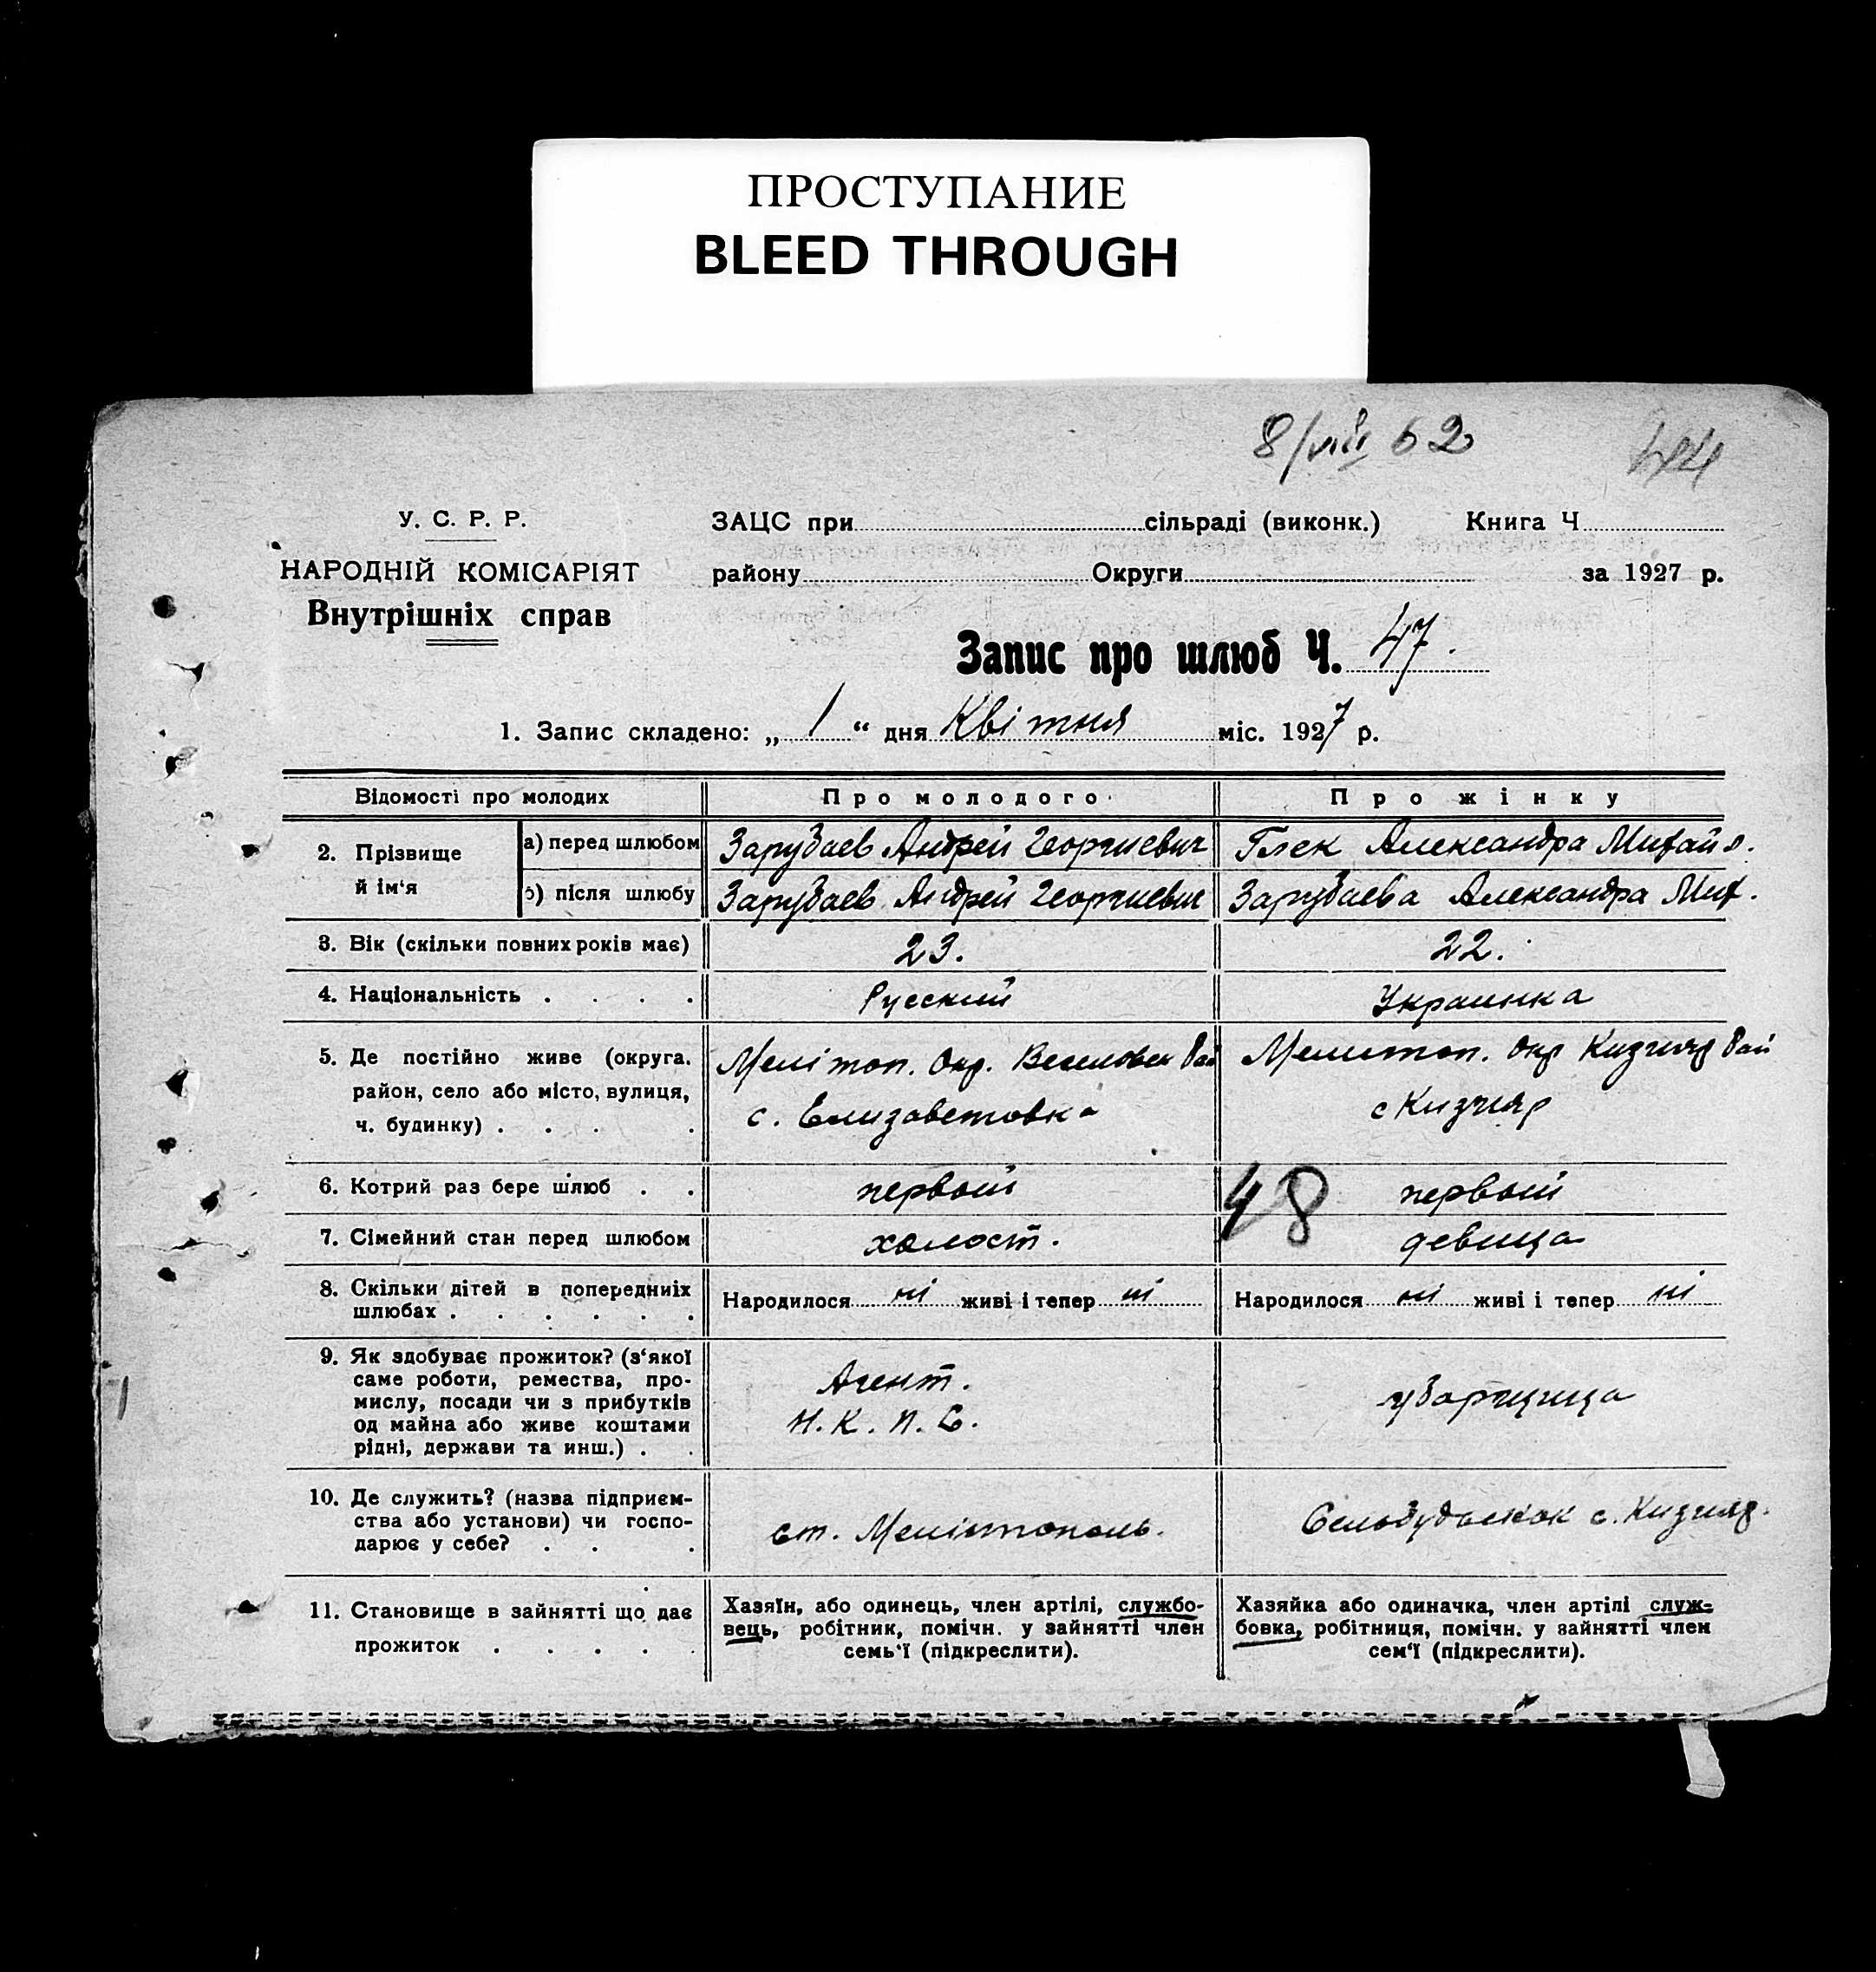 ПРОСТУПАНИЕ
BLEED THROUGH
8/VIII 62
44
У. С. Р. Р.
НАРОДНІЙ КОМІСАРІЯТ
Внутрішніх справ
ЗАЦС при сільраді (виконк.) Книга Ч
району Округи за 1927 р.
Запис про шлюб Ч. 47.
1. Запис складено: „ 1 “ дня Квітня міс. 1927 р.
Відомості про молодих Про молодого Про жінку
2. Прізвище й ім‘я
а) перед шлюбом Зарубаев Андрей Георгиевич Глек Александра Михайл.
б) після шлюбу Зарубаев Андрей Георгиевич Зарубаева Александра Мих.
3. Вік (скільки повних років має) 23. 22.
4. Національність . . . . Русский Украинка
5. Де постійно живе (округа. Мелітоп. Окр. Веселовск Рай Мелитоп. Окр Кизияр Рай
район, село або місто, вулиця, с. Елизаветовка с Кизияр
ч. будинку) . . . .
6. Котрий раз бере шлюб . . первый 48 первый
7. Сімейний стан перед шлюбом холост. девица
8. Скільки дітей в попередниіх Народилося ні живі і тепер ні Народилося ні живі і тепер ні
шлюбах . . . . . .
9. Як здобуває прожиток? (з‘якої
саме роботи, ремества, про- Агент.
мислу, посади чи з прибутків Н. К. П. С. уборщица
од майна або живе коштами
рідні, держави та инш.) . .
10. Де служить? (назва підприєм-
ства або установи) чи госпо- ст. Мелітополь. с. Кизияр.
дарює у себе? . . .
11. Становище в зайнятті що дає Хазяїн, або одинець, член артілі, службо- Хазяйка або одиначка, член артілі служ-
прожиток . . . . вець, робітник, помічн. у зайнятті член бовка, робітниця, помічн. у зайнятті член
семь‘ї (підкреслити). сем‘ї (підкреслити).